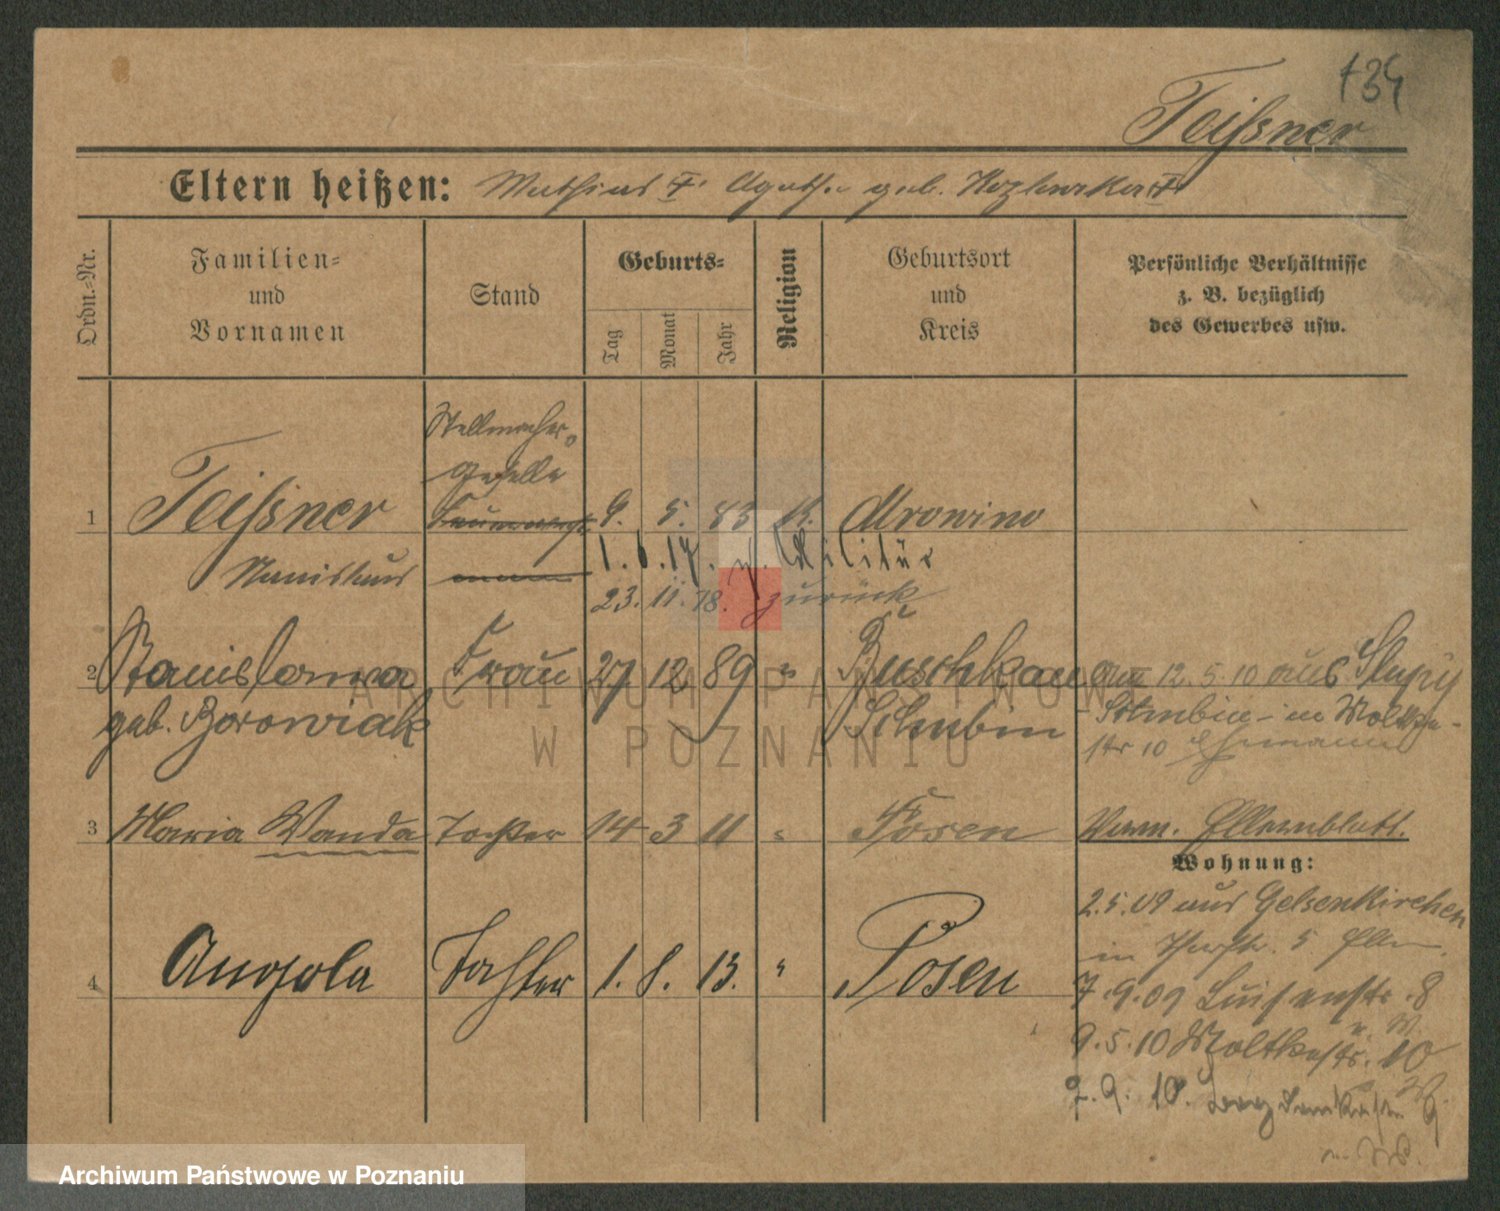 134
Teißner
Eltern heißen: Mathias †. Agathe geb. Kozlowska †
Ordn.-Nr.
Familien- und Vornamen
Stand
Geburts-
Tag
Monat
Jahr
Religion
Geburtsort und Kreis
Persönliche Verhältnisse z. B. bezüglich des Gewerbes usw.
Stellmacher-
geselle
1 Teißner 9. 5. 83 K. Mrowino
Stanislaus
1. 6. 17. z. Militär
23. 11. 18. zurück
2 Stanislawa Frau 27 12 89 " Buschkau am 12.5.10 aus Slupy
geb. Borowiak Schubin - Schubin - in Moltke-
str 10 Ehemann
3 Maria Wanda Tochter 14 3 11 " Posen Verm. Elternblatt.
Wohnung:
2.5.09 aus Gelsenkirchen
in 5
4 Angela Tochter 1. 8. 13. " Posen
7.9.09 Luisenstr. 8
9.5.10 Moltkestr. 10
2. 9. 10. 9
Archiwum Państwowe w Poznaniu
ARCHIWUM PAŃSTWOWE
W POZNANIU